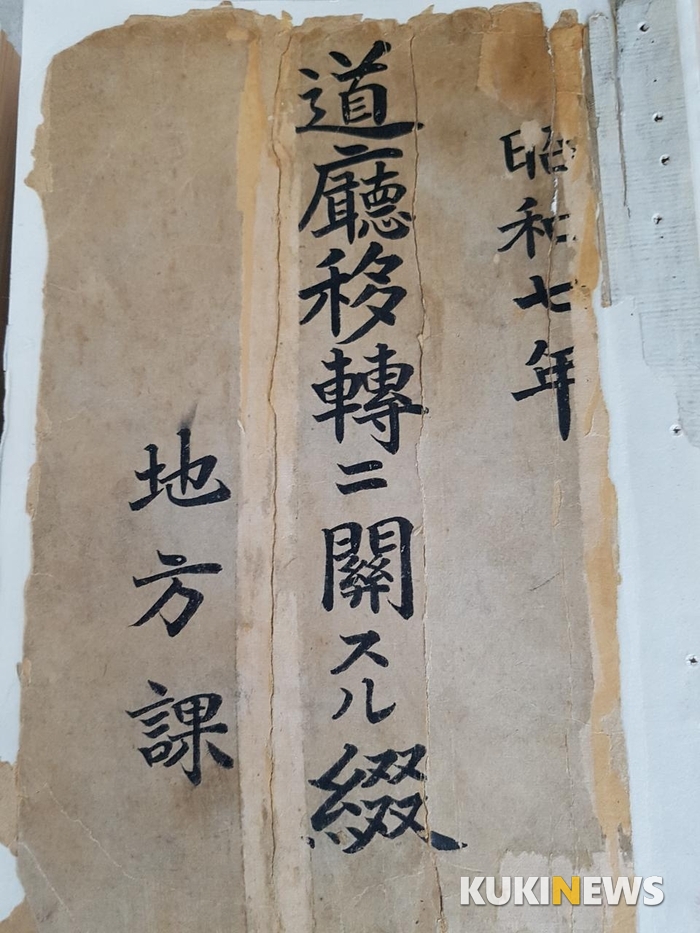 昭和七年
道廳移轉ニ關スル綴
地方課
KUKINEWS